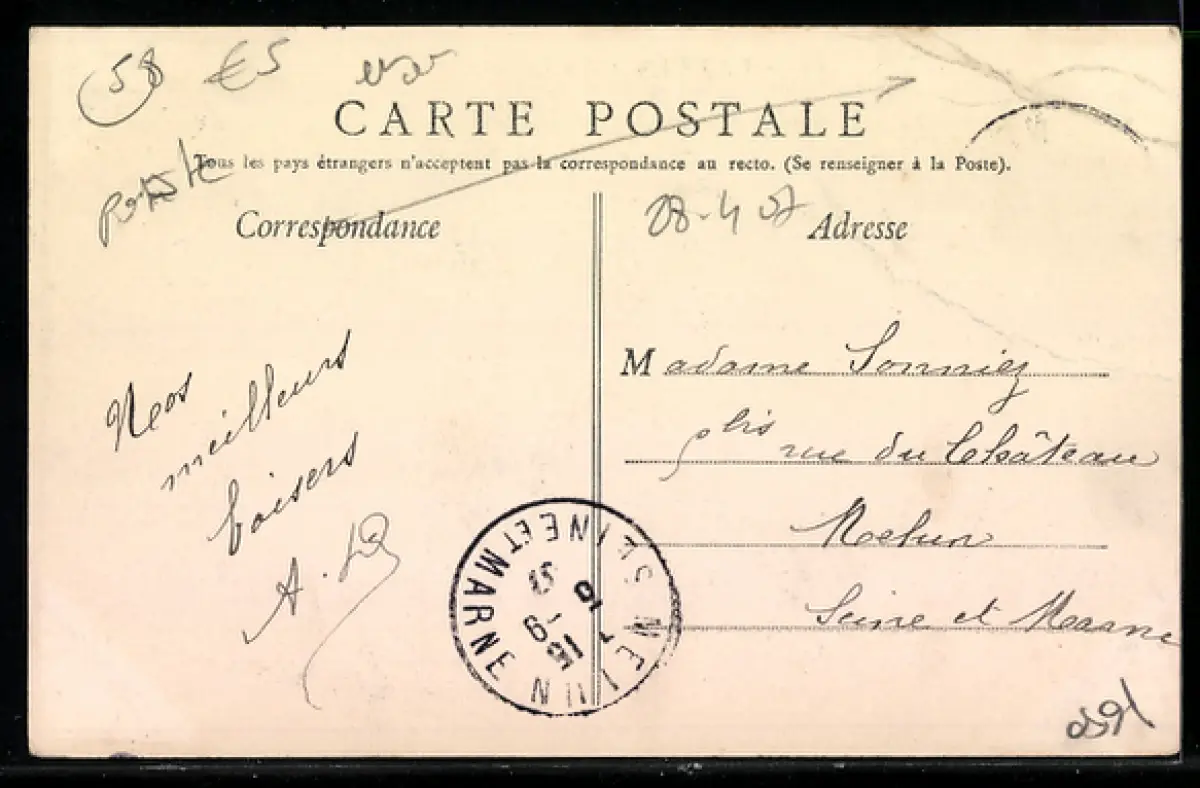 58 €5
CARTE POSTALE
Tous les pays étrangers n'acceptent pas la correspondance au recto. (Se renseigner à la Poste).
Correspondance
08-4 07
Adresse
Nos
meilleurs
baisers
A.
Madame Sonniez
9 bis rue du Château
Melun
Seine et Marne
MELUN
SEINE ET MARNE